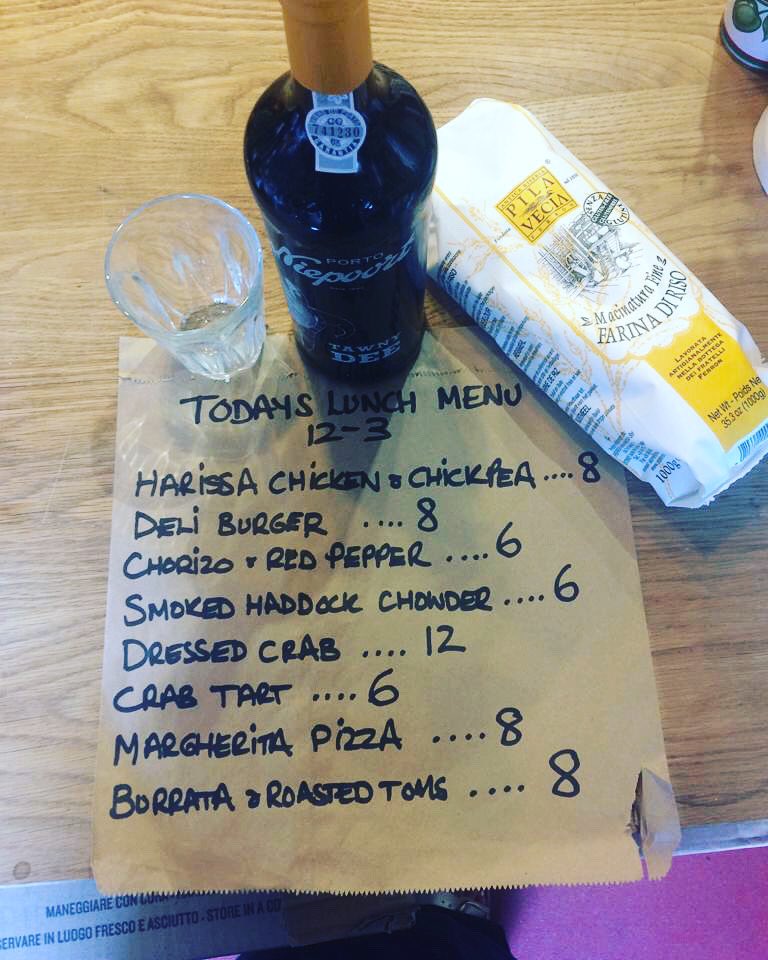 CG
741230
GARANTIA
PORTO
Niepoort
TAWNY
DEE
PILA
VECIA
Macinatura Fine
FARINA DI RISO
LAVORATA
ARTIGIANALMENTE
NELLA BOTTEGA
DEI FRATELLI
FERRON
Net Wt - Poids Ne
35.3 oz (1000g)
1000g
TODAYS LUNCH MENU
12-3
HARISSA CHICKEN & CHICKPEA .... 8
DELI BURGER .... 8
CHORIZO & RED PEPPER .... 6
SMOKED HADDOCK CHOWDER .... 6
DRESSED CRAB .... 12
CRAB TART .... 6
MARGHERITA PIZZA .... 8
BURRATA & ROASTED TOMS .... 8
MANEGGIARE CON CURA
SERVARE IN LUOGO FRESCO E ASCIUTTO - STORE IN A CO